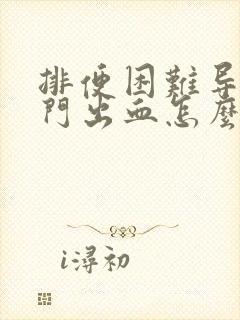 排便困難导
門出血怎麼
i潯初